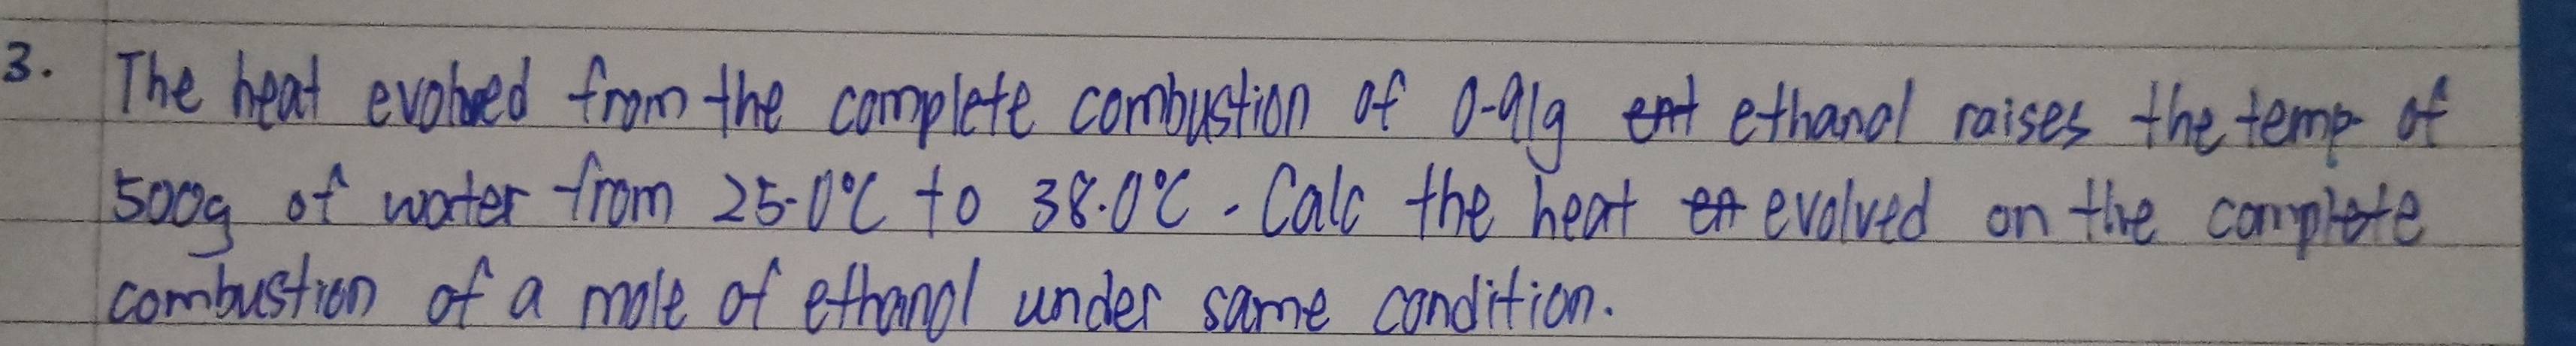 3. The heat evolved from the complete combustion of 0.91g ent ethanol raises the temp of
500g of water from 25.0°C to 38.0°C. Calc the heat en evolved on the complete
combustion of a mole of ethanol under same condition.